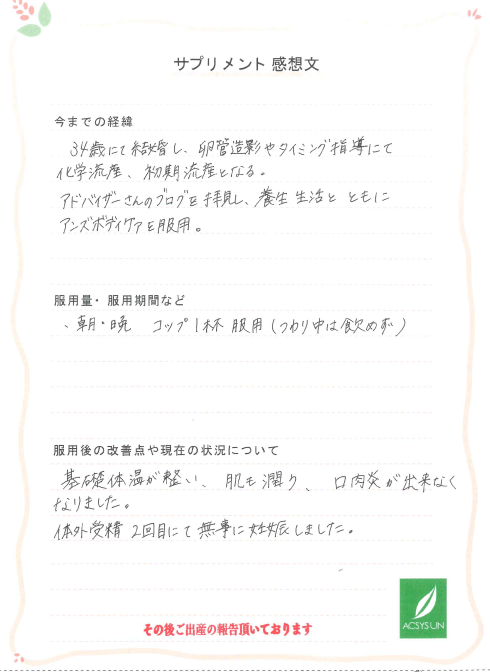 サプリメント 感想文
今までの経緯
34歳にて結婚し、卵管造影やタイミング指導にて
化学流産、初期流産となる。
アドバイザーさんのブログを拝見し、養生生活と ともに
アンズボディケアを服用。
服用量・服用期間など
、朝・晩 コップ1杯 服用(つわり中は飲めず)
服用後の改善点や現在の状況について
基礎体温が整い、肌も潤り、口内炎が出来なく
なりました。
体外受精 2回目にて無事に妊娠しました。
その後ご出産の報告頂いております
ACSYSUN